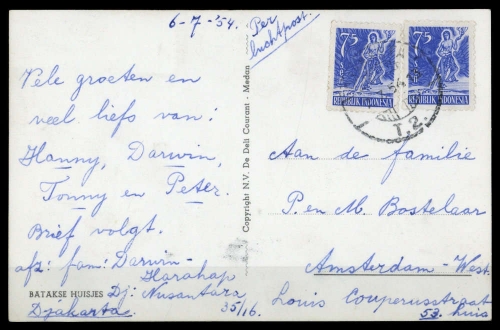 6-7-'54.
Per
luchtpost.
Vele groeten en
veel liefs van:
Hanny, Darwin,
Tonny en Peter.
Brief volgt.
afz: fam: Darwin-
Harahap
BATAKSE HUISJES
Dj: Nusantara
35/16.
Djakarta.
Copyright N.V. De Deli Courant - Medan
75
REPUBLIK INDONESIA
75
REPUBLIK INDONESIA
T.2.
Aan de familie
P. en M. Bostelaar
Amsterdam-West.
Louis Couperusstraat
53. huis